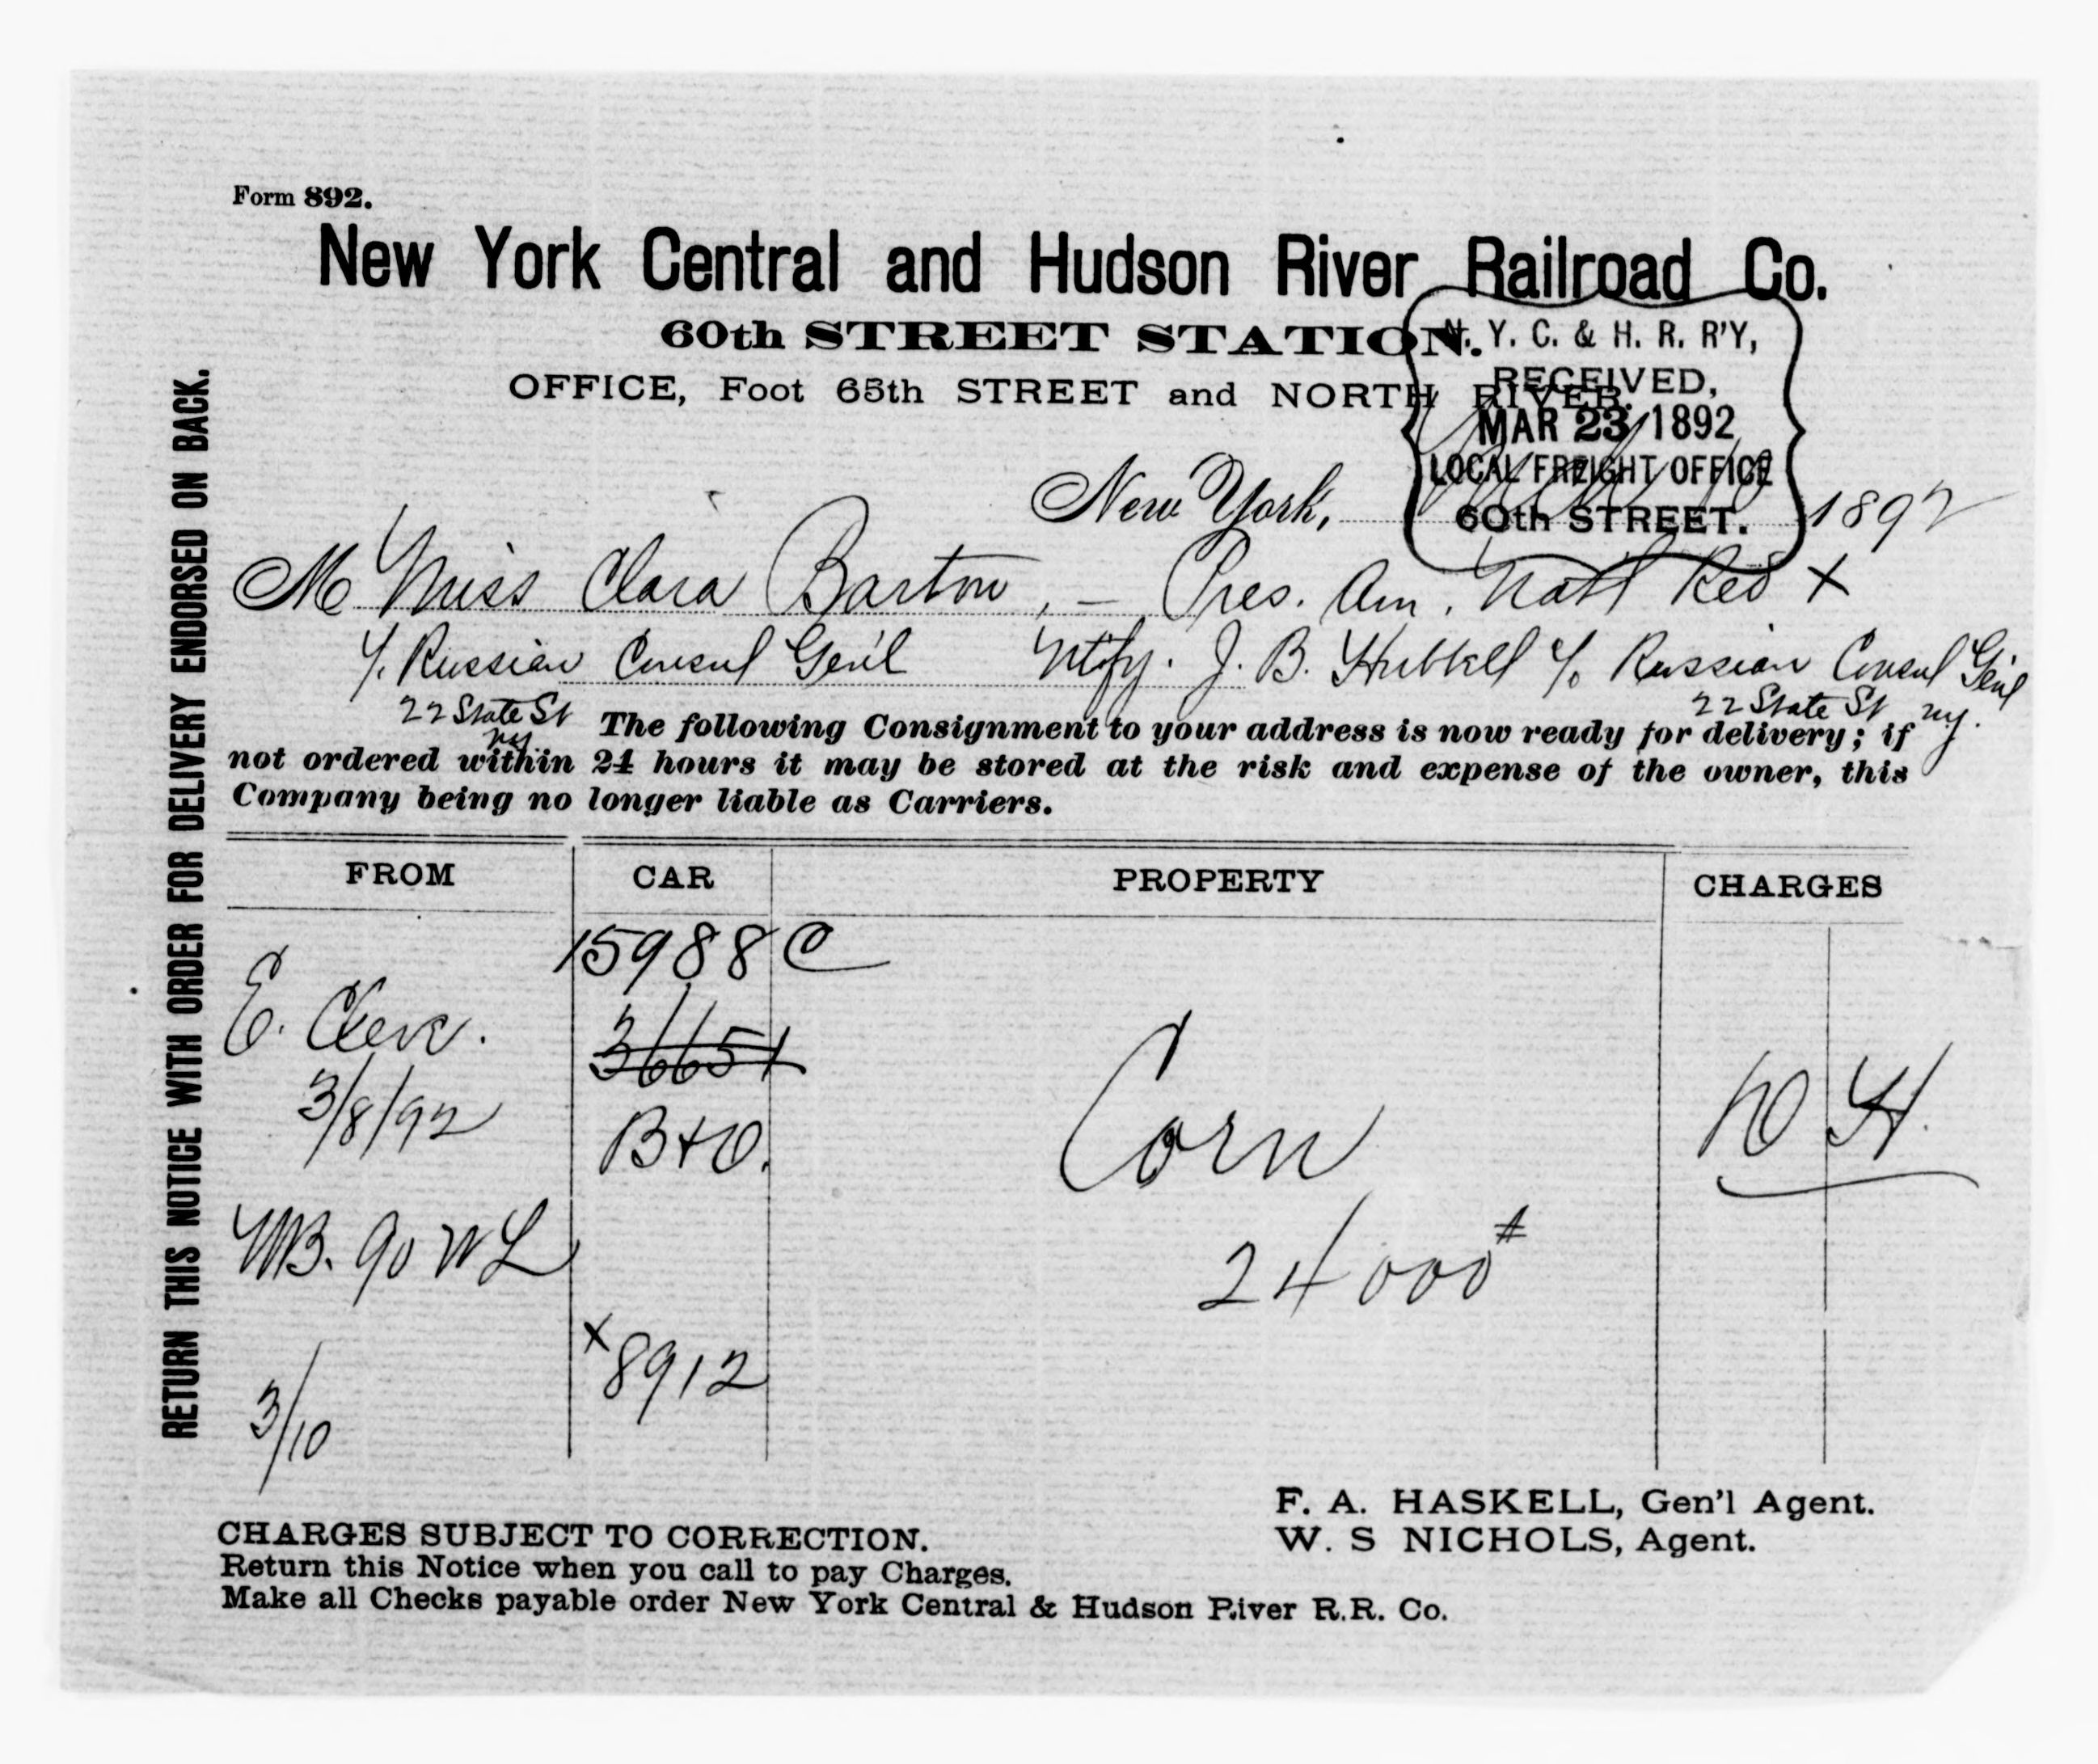 Form 892.
New York Central and Hudson River Railroad Co.
60th STREET STATION.
OFFICE, Foot 65th STREET and NORTH RIVER.
N. Y. C. & H. R. R'Y,
RECEIVED,
MAR 23 1892
LOCAL FREIGHT OFFICE
60th STREET.
New York, 1892
M Miss Clara Barton, – Pres. Am. Natl Red X
c/o Russian Consul Gen'l Notify. J. B. Hubbell c/o Russian Consul Gen'l
22 State St 22 State St ny.
ny.
The following Consignment to your address is now ready for delivery; if
not ordered within 24 hours it may be stored at the risk and expense of the owner, this
Company being no longer liable as Carriers.
FROM CAR PROPERTY CHARGES
15988 C
E. Cleve. 36651
3/8/92 B+O. Corn
WB. 90 WL 24000#
x 8912
3/10
F. A. HASKELL, Gen'l Agent.
W. S NICHOLS, Agent.
CHARGES SUBJECT TO CORRECTION.
Return this Notice when you call to pay Charges.
Make all Checks payable order New York Central & Hudson River R.R. Co.
RETURN THIS NOTICE WITH ORDER FOR DELIVERY ENDORSED ON BACK.